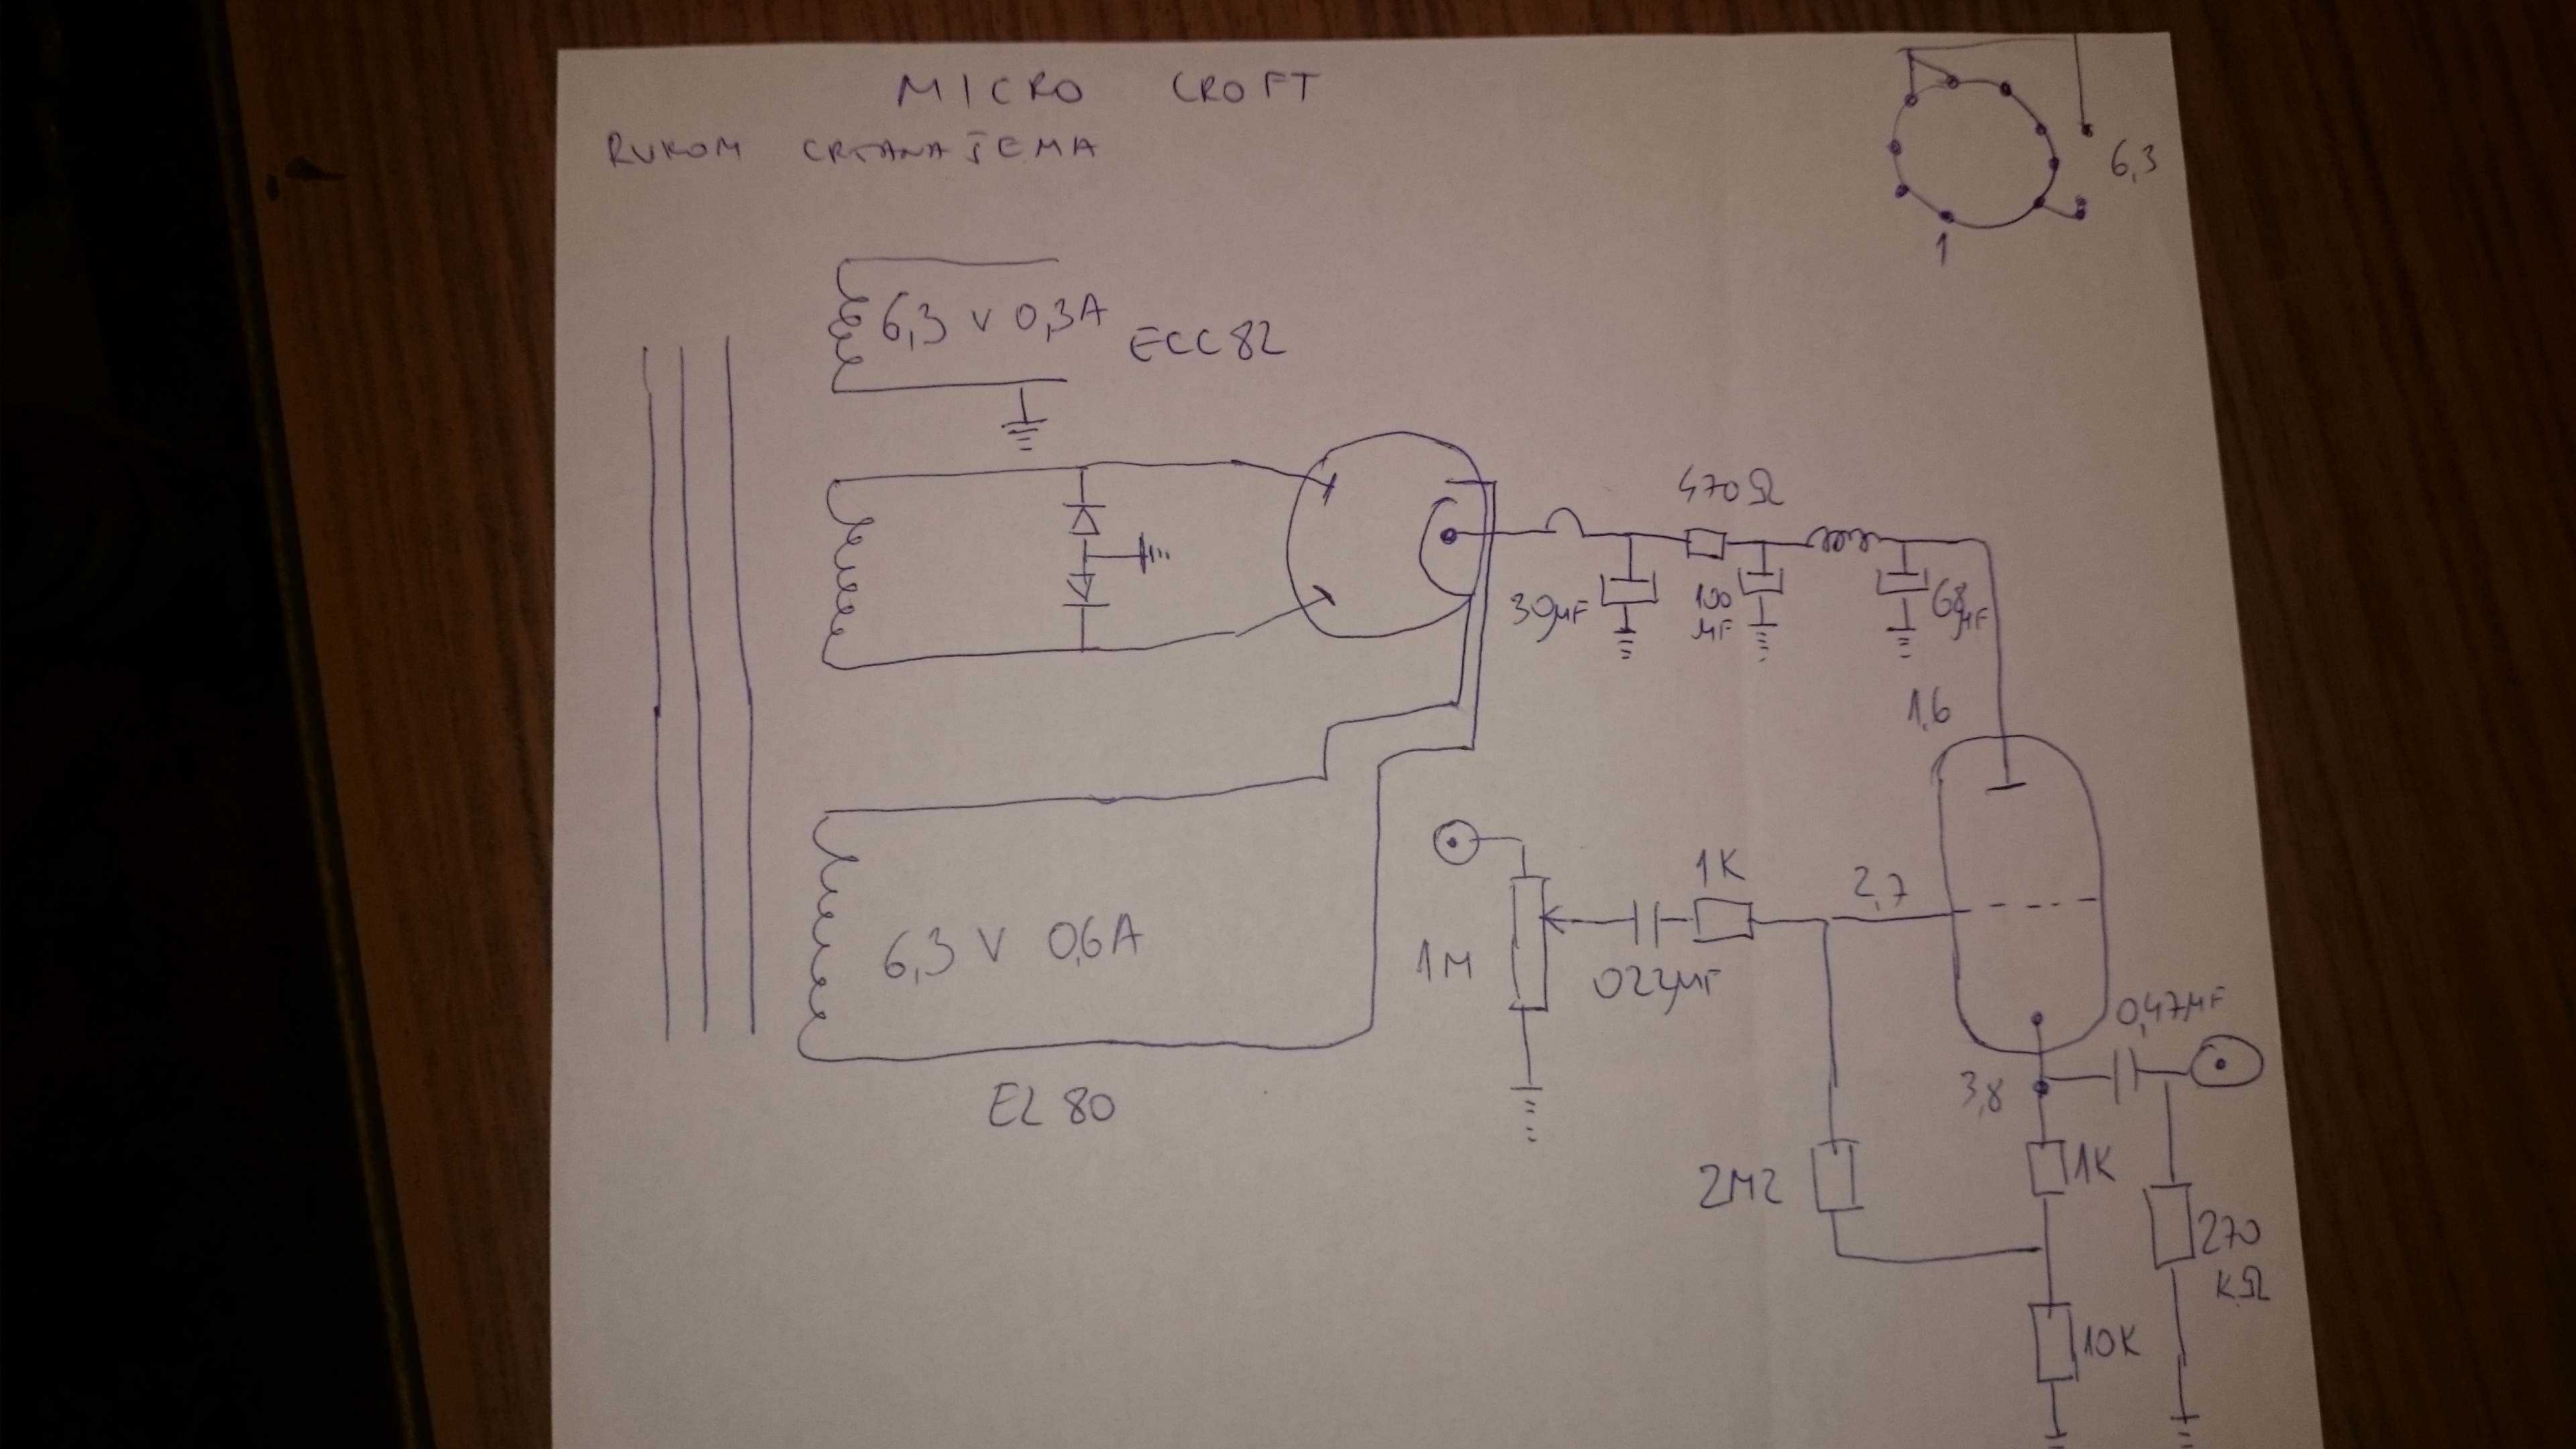 MICRO CROFT
RUKOM CRTANA ŠEMA
6,3
1
6,3 V 0,3A
ECC82
470Ω
30µF
100
µF
68
µF
1,6
1K
2,7
6,3 V 0,6A
1M
022µF
0,47µF
EZ 80
3,8
2M2
1K
270
KΩ
10K